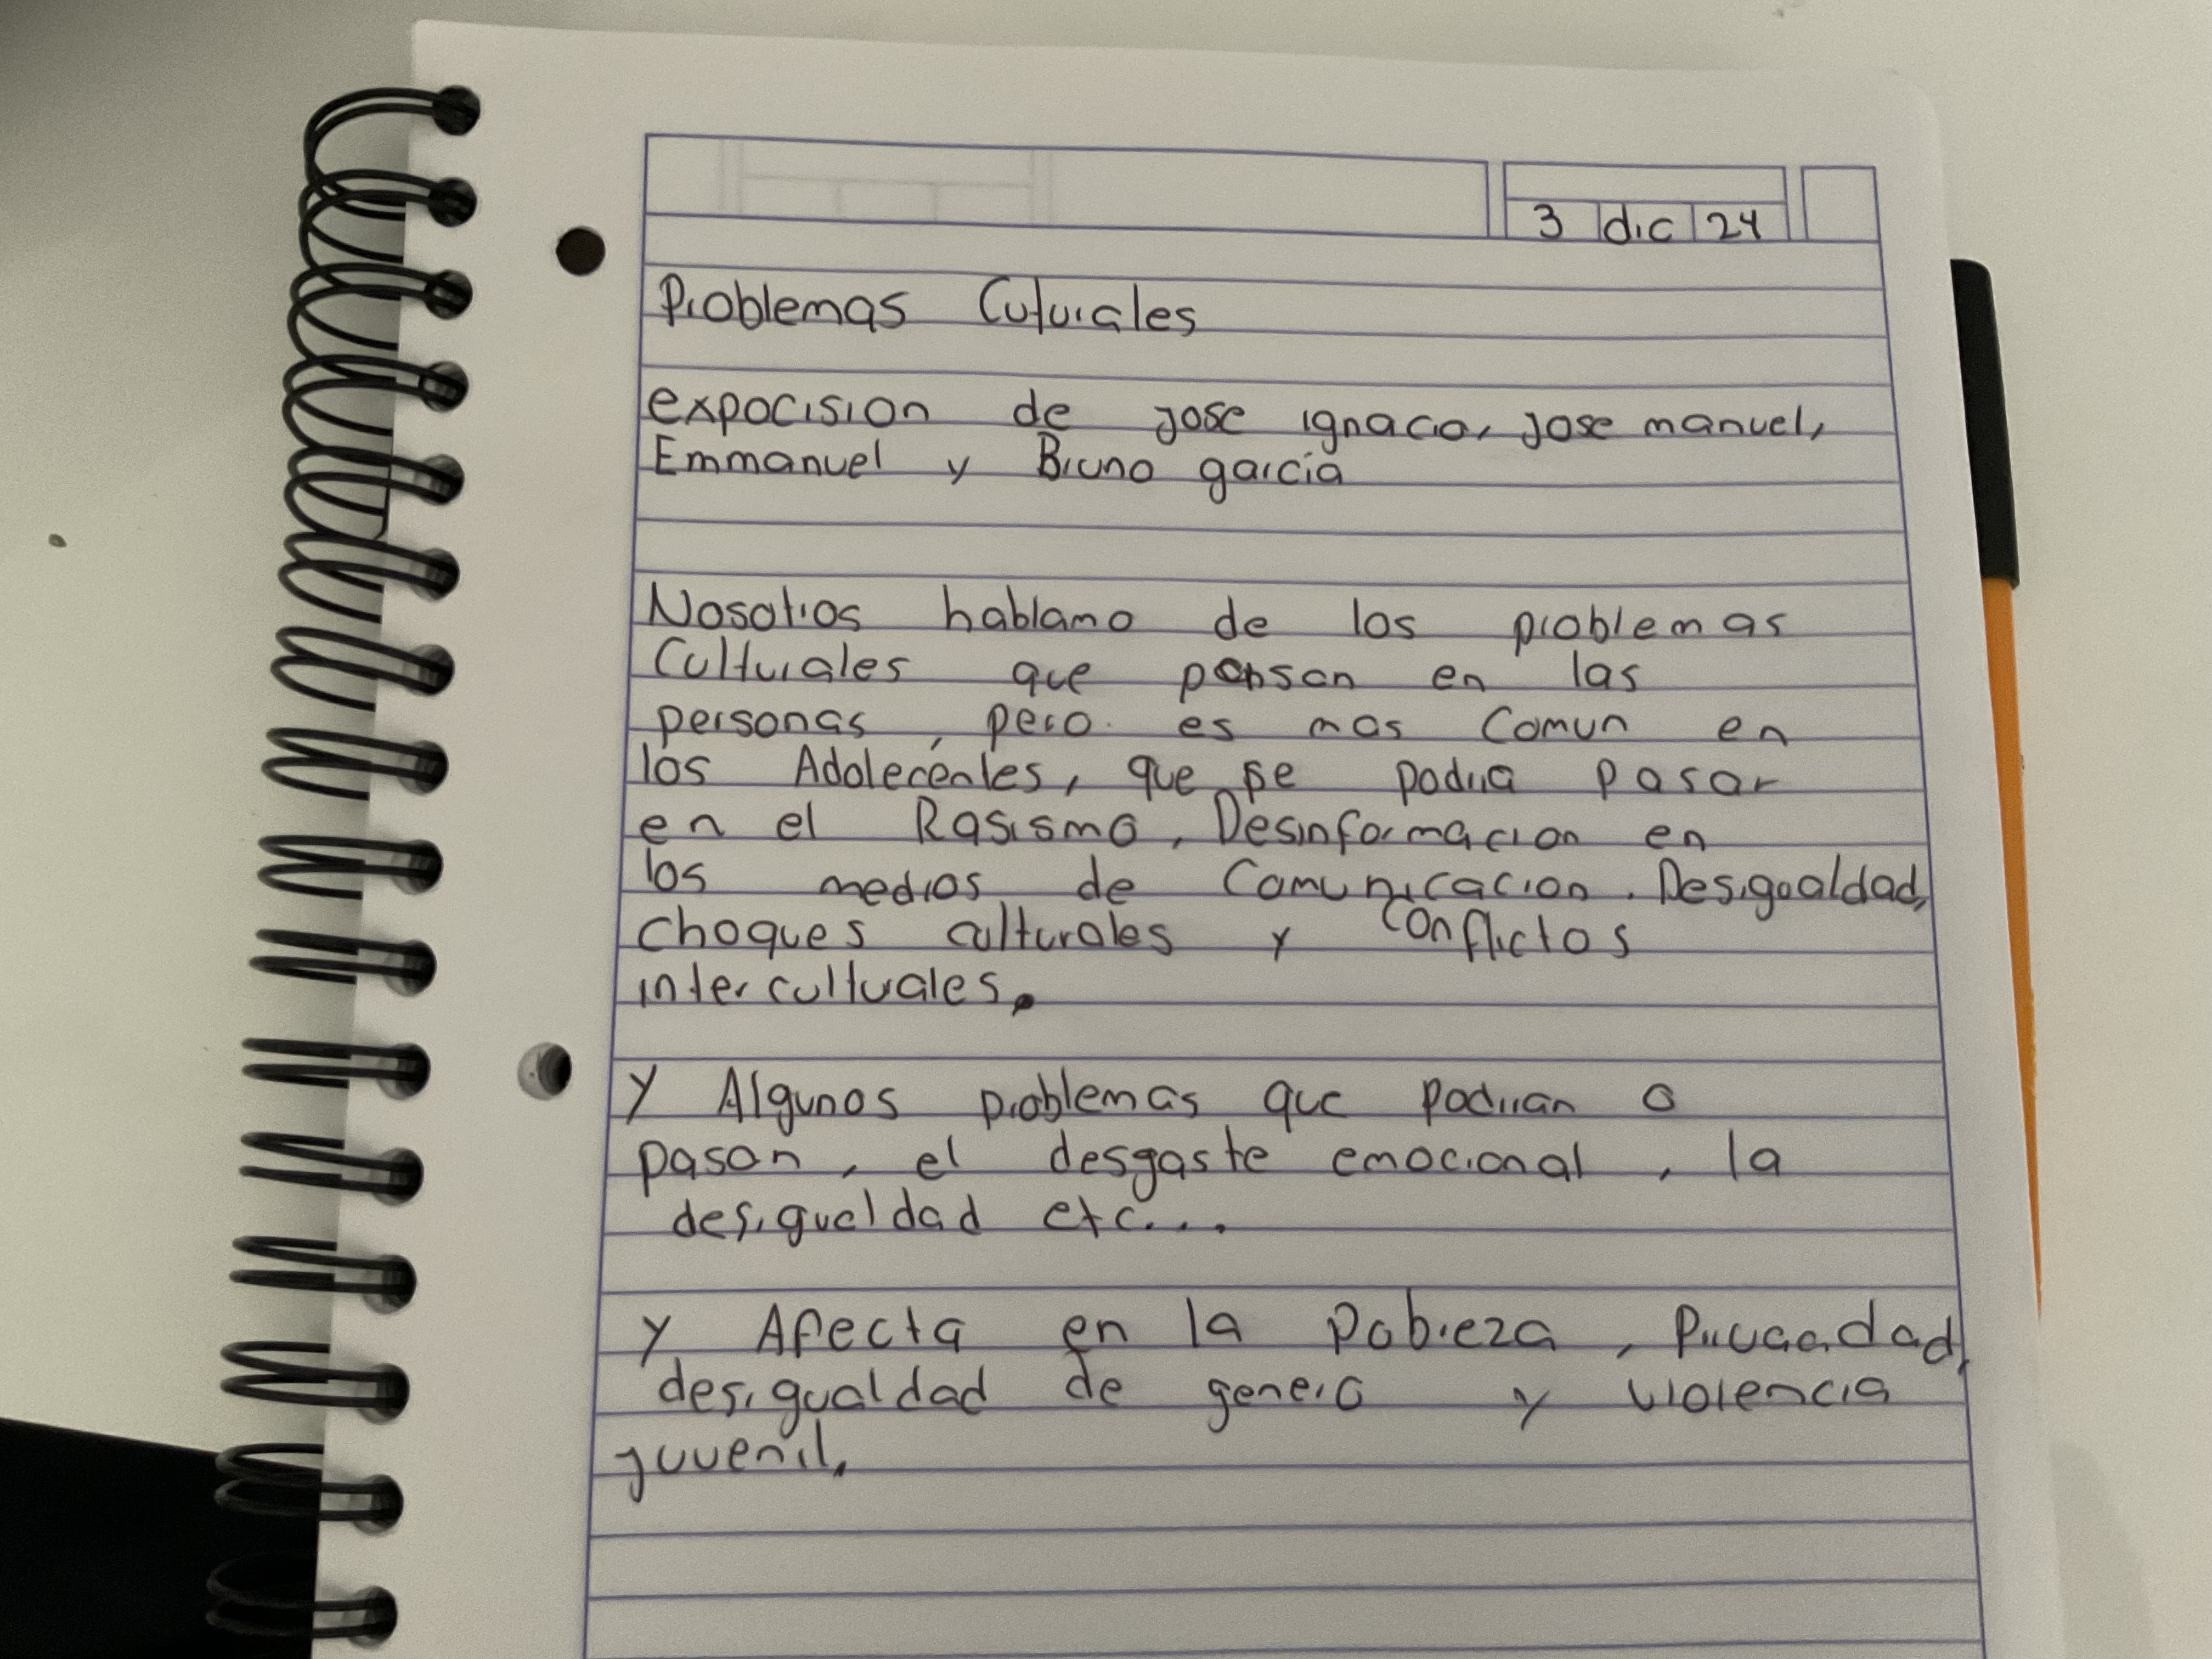 3 dic 24
Problemas Cuturales
expocision de jose ignacio, jose manuel,
Emmanuel y Bruno garcia
Nosotros hablamo de los problemas
Culturales que pansan en las
personas, pero es mas Comun en
los Adolecentes, que se podria pasar
en el Rasismo, Desinformacion en
los medios de Comunicacion. Desigualdad,
choques culturales y conflictos
interculturales.
y Algunos problemas que podrian o
pasan, el desgaste emocional, la
desigualdad etc...
y Afecta en la pobreza,
desigualdad de genero y violencia
juvenil.